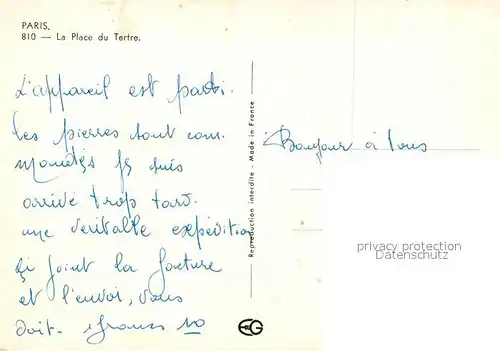 PARIS.
810 — La Place du Tertre.
L'appareil est parti.
les pierres sont com-
mandées je suis
arrivé trop tard.
une veritable expédition
Ci joint la facture
et l'envoi, vous
doit. francs 10
Reproduction interdite . Made in France
Bonjour à tous
privacy protection
Datenschutz